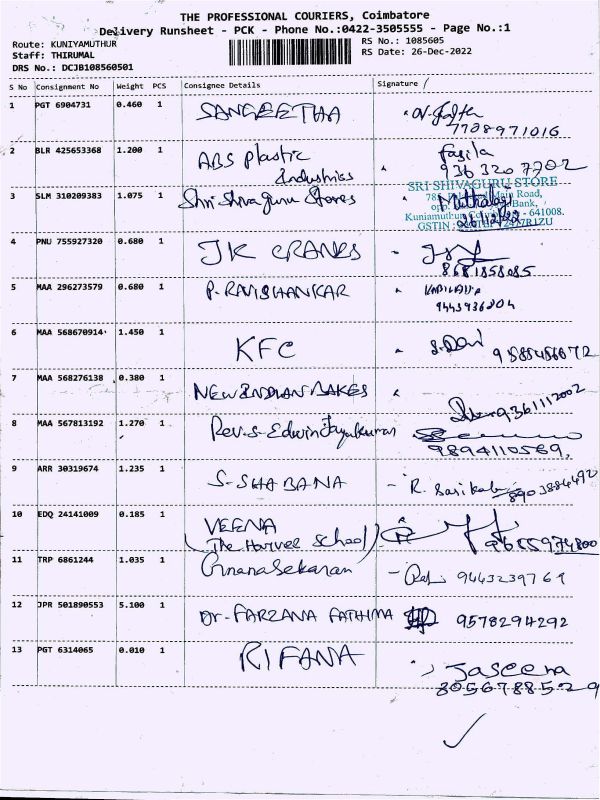 THE PROFESSIONAL COURIERS, Coimbatore
Delivery Runsheet - PCK - Phone No.:0422-3505555 - Page No.:1
Route: KUNIYAMUTHUR RS No.: 1085605
Staff: THIRUMAL RS Date: 26-Dec-2022
DRS No.: DCJB108560501
S No Consignment No Weight PCS Consignee Details Signature
1 PGT 6904731 0.460 1 SANGEETHA
7708971016
2 BLR 425653368 1.200 1 ABS Plastic Industries fasila
936 320 7702
3 SLM 310209383 1.075 1 Shri Shivaguru Stores
SRI SHIVAGURU STORE
Main Road,
Bank,
Kuniamuthur - 641008.
GSTIN
4 PNU 755927320 0.680 1 JK CRANES
8681858085
5 MAA 296273579 0.680 1 P. RAVISHANKAR
9443936204
6 MAA 568670914 1.450 1 KFC
7 MAA 568276138 0.380 1 NEW INDIAN BAKES
9361112002
8 MAA 567813192 1.270 1 Rev.S. Edwin Jayakumar
9894110569.
9 ARR 30319674 1.235 1 S-SHABANA - R. Sarikala
8903884492
10 EDQ 24141009 0.185 1 VEENA
(The Harvee School)
9685974800
11 TRP 6861244 1.035 1 Gnanasekaran 9443239761
12 JPR 501890553 5.100 1 Dr-FARZANA FATHIMA 9578294292
13 PGT 6314065 0.010 1 RIFANA Jaseena
8056788529